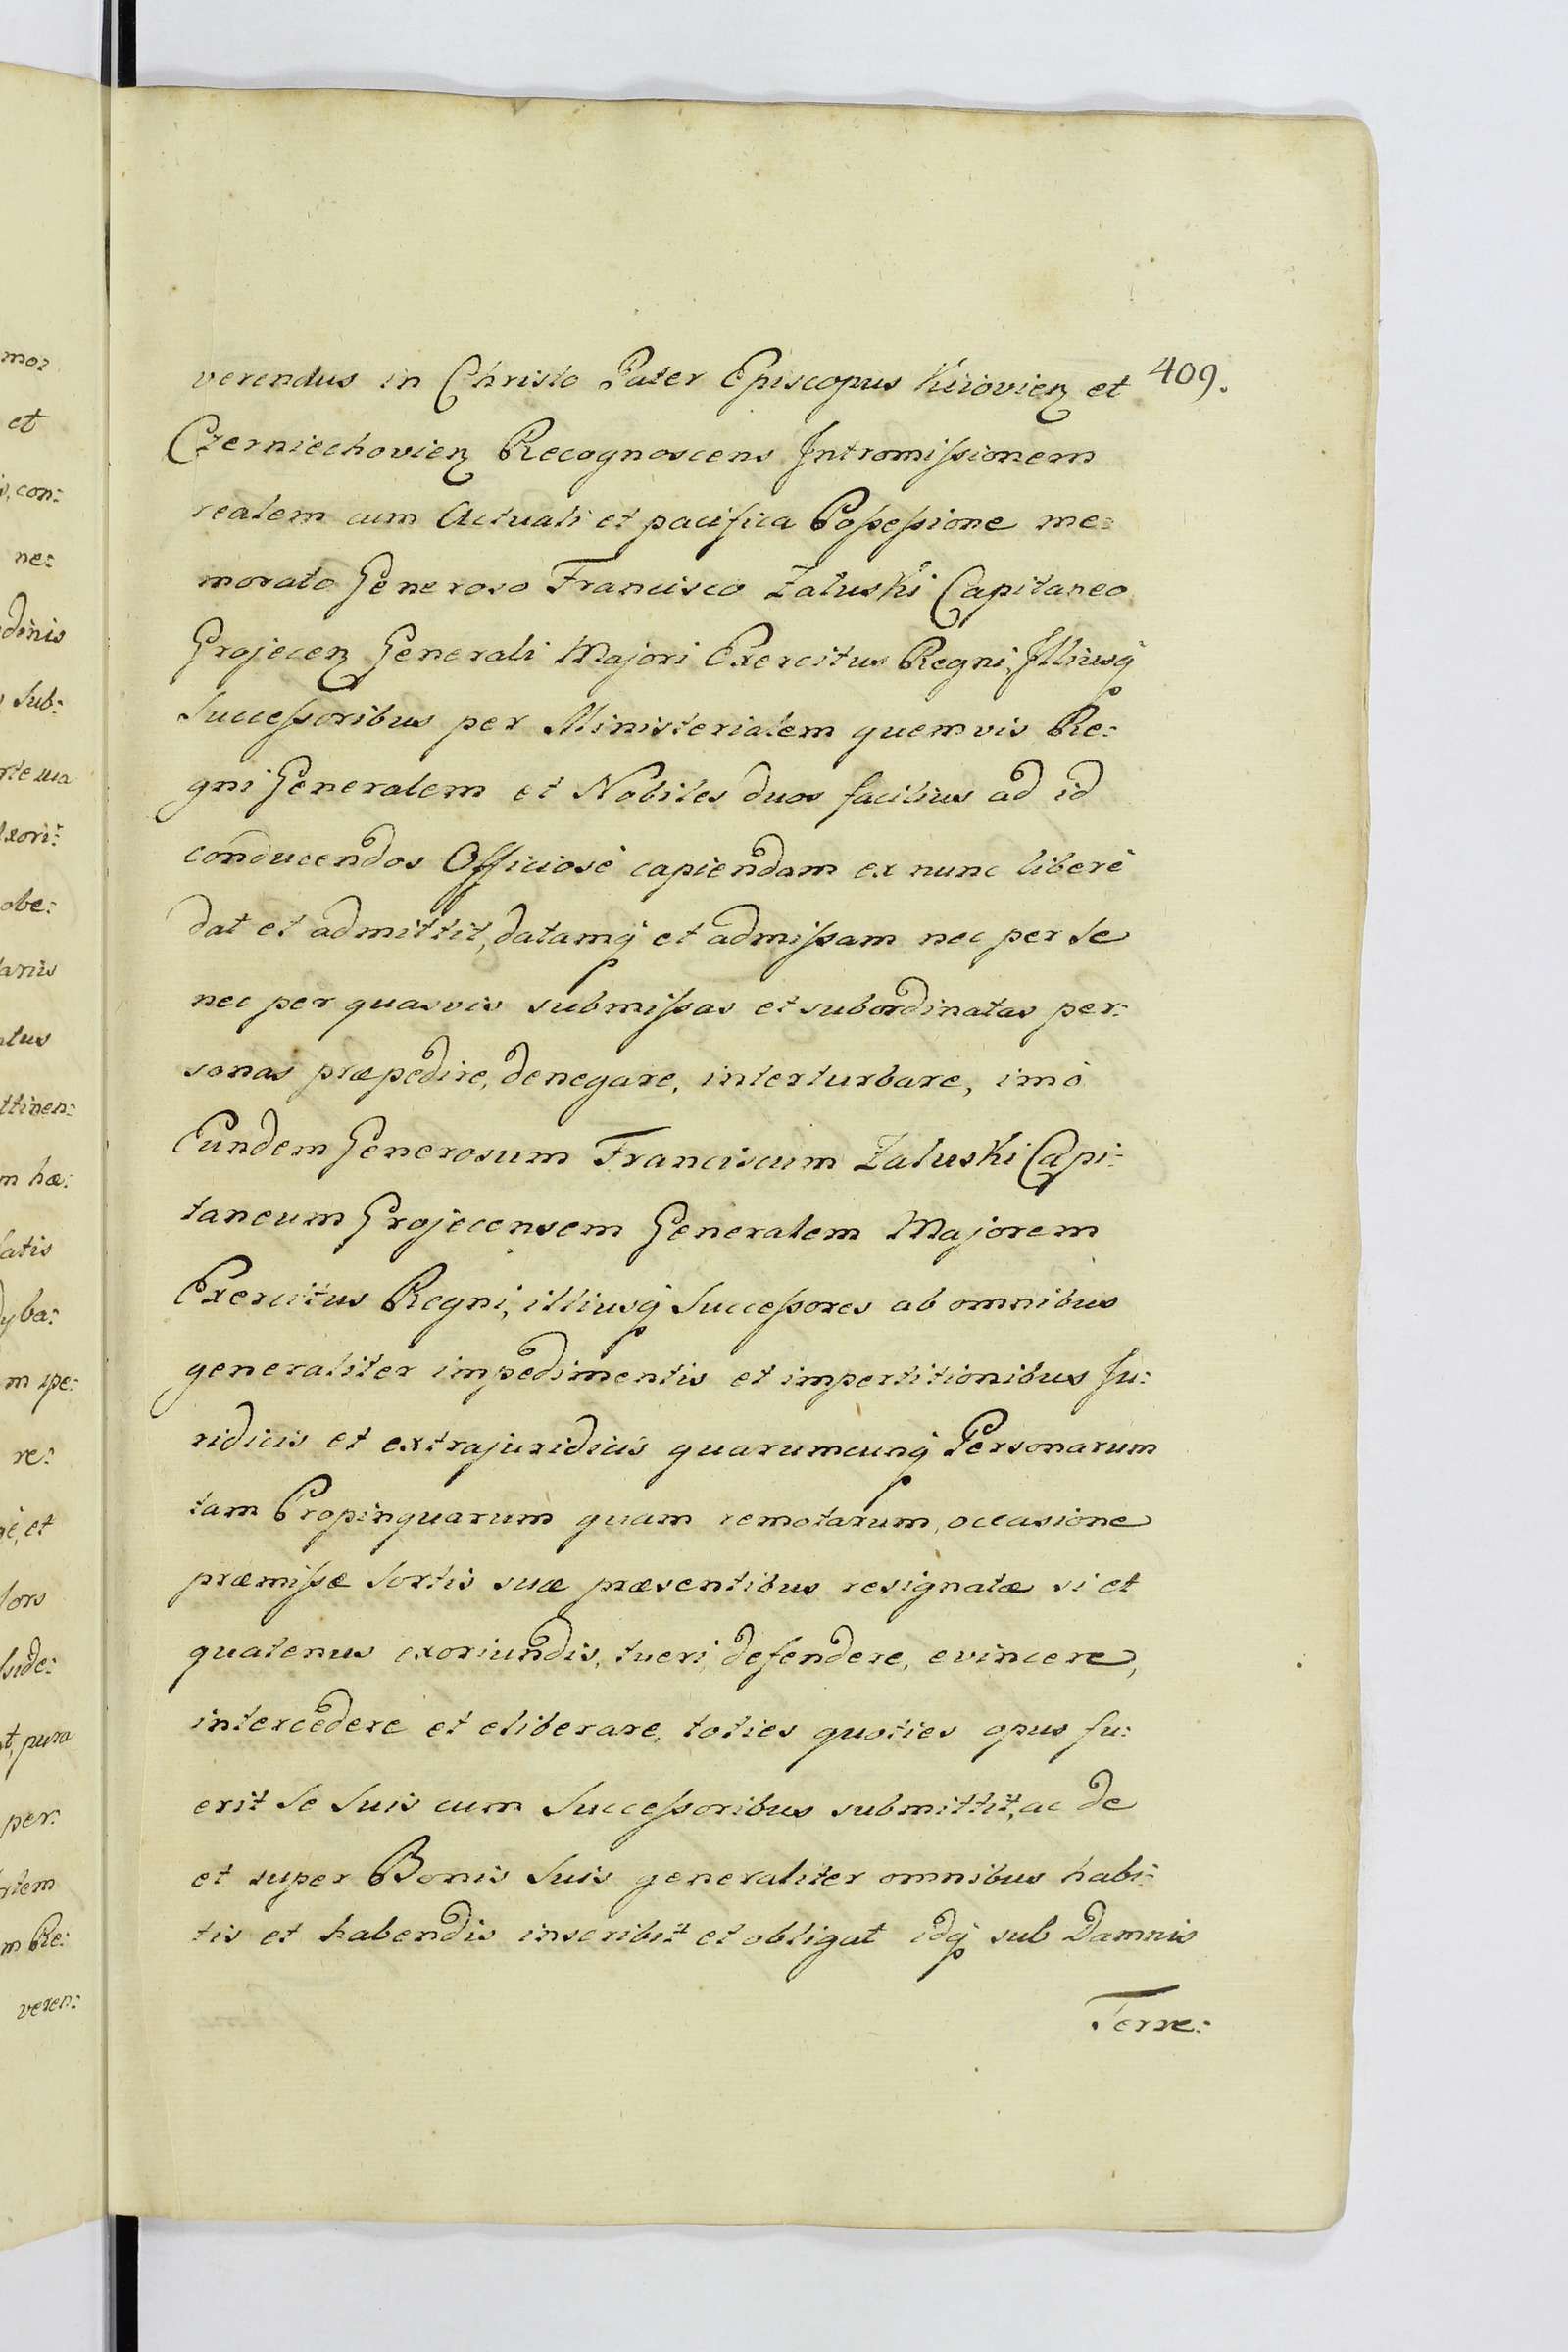 409.
verendus in Christo Pater Episcopus Kiiovien et
Czerniechovien Recognoscens Intromissionem
realem cum Actuali et pacifica Possessione me:
morato Generoso Francisco Zaluski Capitaneo
Grojecen Generali Majori Exercitus Regni, Illiusq
Successoribus per Ministerialem quemvis Re:
gni Generalem et Nobiles duos facilius ad id
conducendos Officiosè capiendam ex nunc liberè
dat et admittit, datamq et admissam nec per se
nec per quasvis submissas et subordinatas per:
sonas præpedire, denegare, interturbare, imò
Eundem Generosum Franciscum Zaluski Capi:
taneum Grojecensem Generalem Majorem
Exercitus Regni, illiusq Successores ab omnibus
generaliter impedimentis et impertitionibus Ju:
ridicis et extrajuridicis quarumcunq Personarum
tam Propinquarum quam remotarum, occasione
præmissæ Sortis suæ præsentibus resignatæ si et
quatenus exoriundis, tueri, defendere, evincere,
intercedere et eliberare, toties quoties opus fu:
erit Se Suis cum Successoribus submittit, ac de
et super Bonis Suis generaliter omnibus habi:
tis et habendis inscribit et obligat idq sub Damnis
Terre:
mo:
et
con:
ne:
Sub:
xori:
obe:
tinen:
m hæ:
latis
yba:
m spe:
re:
et
Sors
side:
pura
per:
m Re:
veren: